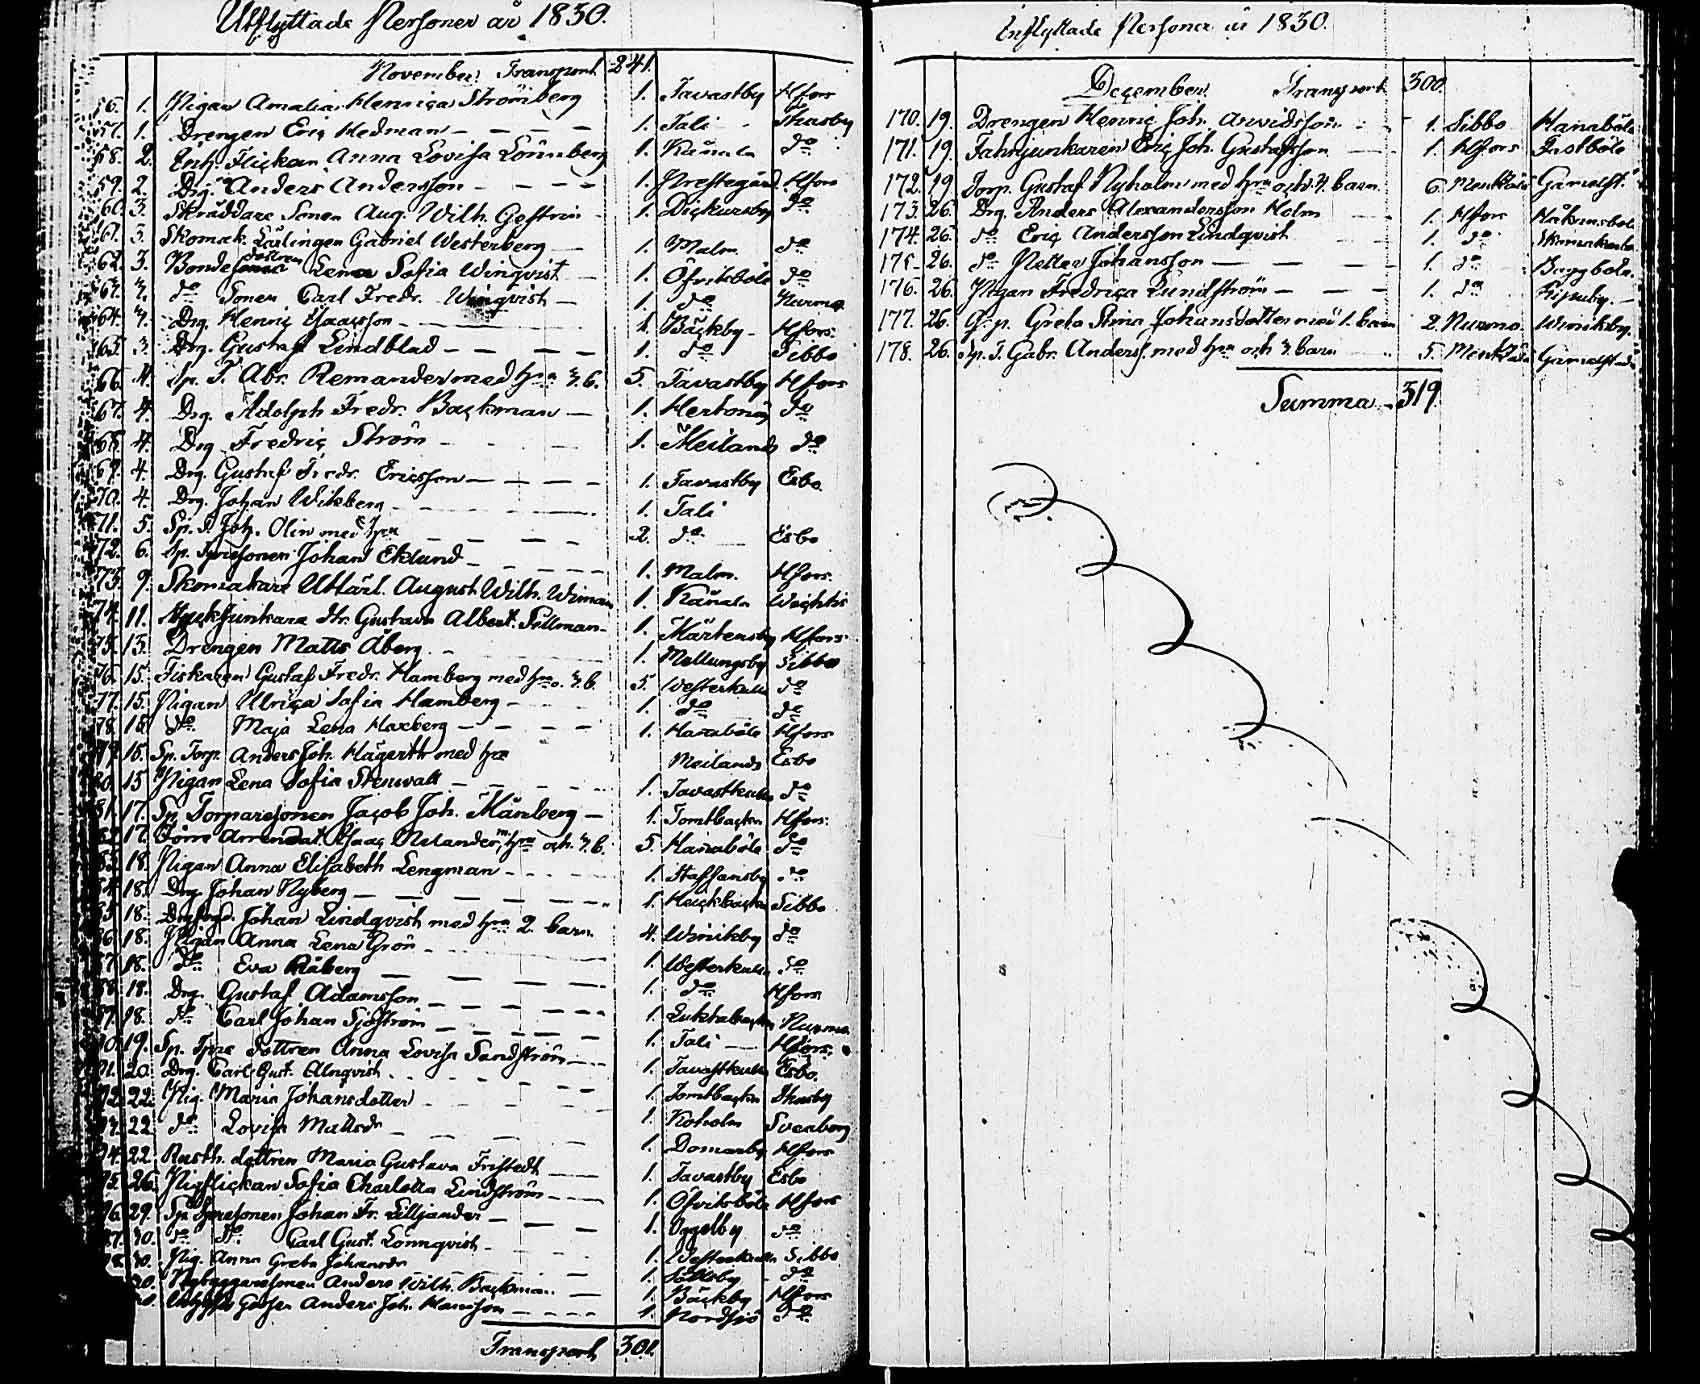 Utflyttade Personer år 1830.
November. Transport 241.
56. 1. Pigan Amalia Henrica Strömberg 1. Tavastby Hfors
57. 1. Drengen Eric Hedman 1. Tali Thusby
58. 2. Enk. Flickan Anna Lovisa Lönnberg 1. Kånala do
59. 2. Drg Anders Andersson 1. Prestegård Hfors
60. 3. Skräddare Sonen Aug. Wilh. Gestrin 1. Dickursby do
61. 3. Skomak. Lärlingen Gabriel Westerberg 1. Malm do
62. 3. Bonde dottren Lena Sofia Winqvist 1. Öfvitsböle do
63. 3. do Sonen Carl Fredr. Winqvist 1. do Nurmo
64. 3. Drg. Henric Isacsson 1. Bäckby Hfors
65. 3. Drg. Gustaf Lindblad 1. do Sibbo
66. 4. Sp. T. Abr. Remander med hru 3. b. 5. Tavastby Hfors
67. 4. Drg. Adolph Fredr. Backman 1. Hertonäs do
68. 4. Drg Fredric Ström 1. Meilands do
69. 4. Drg. Gustaf Fredr. Ericsson 1. Tavastby Esbo
70. 4. Drg. Johan Wikberg 1. Tali
71. 5. Sp. T. Joh. Olin med hru 2. do Esbo
72. 6. Sp. Johan Eklund 1. Malm. Hfors.
73. 9. Skomakare Utlärl. August Wilh. Wiman 1. Kånala Wichtis
74. 11. Styckjunkare Hr. Gustava Albert. Sillman 1. Mårtensby Hfors
75. 13. Drengen Matts Åberg 1. Mellungsby Sibbo
76. 15. Fiskaren Gustaf Fredr. Hamberg med hru o. 3. b. 5. Westerkulla do
77. 15. Pigan Ulrica Sofia Hamberg 1. do do
78. 15. do Maja Lena Haxberg 1. Hanaböle Hfors
79. 15. Sp. Torp. Anders Joh. Hägerth med hru Meilands Esbo
80. 15 Pigan Lena Sofia Stenwall 1. Tavastkulla do
81. 17. Sp. Torparesonen Jacob Joh. Hånberg 1. Tomtbacka Hfors.
82. 17. Arrendat. Isaac Nelander, m. hru och 3. b. 5. Hanaböle do
83. 18. Pigan Anna Elisabeth Lengman 1. Staffansby do
84. 18. Drg. Johan Nyberg 1. Sibbo
85. 18. Johan Lindqvist med hru 2. barn 4. Winikby do
86. 18. Pigan Anna Lena Grön 1. Westerkulla do
87. 18. do Eva Råberg 1. do Hfors
88. 18. Drg. Gustaf Adamsson
89. 18. do Carl Johan Sjöström 1. Nurmo
90. 19. Sp. Tprs Dottren Anna Lovisa Sandström 1. Tali Hfors.
91. 20. Drg. Carl Gust. Almqvist 1. Tavastkulla Esbo.
92. 22. Pig. Maria Johansdotter 1. Tomtbacka Thusby
93. 22. do Lovisa Mattsdr 1. Koholm Sveaborg
94. 22. Rusth. dottren Maria Gustava Fristedt 1. Domarby Hfors
95. 26. Pigflickan Sofia Charlotta Lindström 1. Tavastby Esbo
96. 29. Sp. Tpresonen Johan Fr. Lilljander 1. Öfvitsböle Hfors
97. 30. do do Carl Gust. Lönnqvist 1. Oggelby do
30. Pig. Anna Greta Johansdr 1. Westerkulla Sibbo
30. Nybyggaresonen Anders Wilh. Backman 1. do
Gossen Anders Joh. Hansson 1. Bäckby Hfors
1. Nordsjö do
Transport 301.
Inflyttade Personer år 1830.
December. Transport 300.
170. 19. Drengen Henric Joh. Arvidsson 1. Sibbo Hanaböle
171. 19. Fahnjunkaren Eric Joh. Gustafsson 1. Hfors Jastböle
172. 19. Torp. Gustaf Nyholm med hru och 4. barn 6. Gamelst.
173. 26. Drg. Anders Alexandersson Holm 1. Hfors Håkansböle
174. 26. do Eric Andersson Lindqvist 1. do
175. 26. do Petter Johansson 1. do Baggböle.
176. 26. Pigan Fredrica Lundström 1. do
177. 26. Greta Stina Johansdotter med 1. barn 2. Nurmo. Winikby.
178. 26. Sp. T. Gabr. Anderss. med hru och 3. barn 5. Gamelstad
Summa 319.